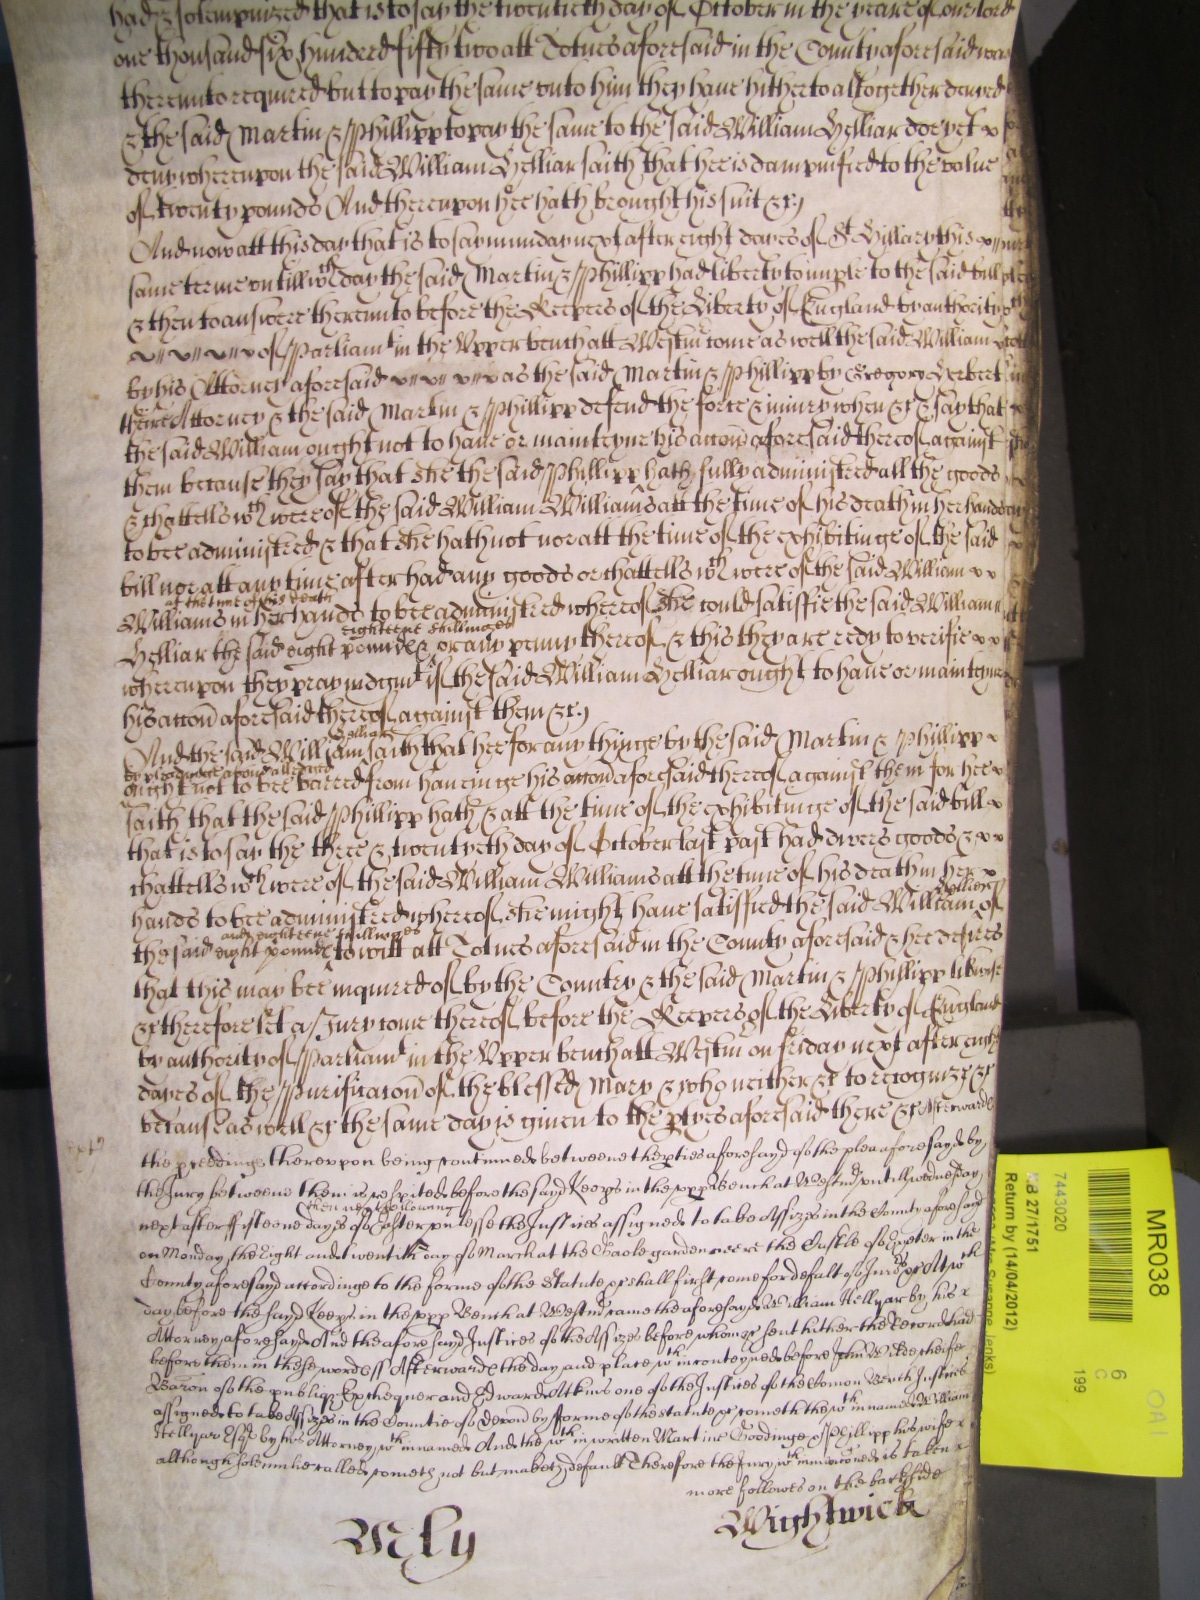 had & solempnized that is to say the twentieth day of October in the yeare of our lord
one thousand six hundred fifty two att Totnes aforesaid in the County aforesaid was
thereunto required but to pay the same unto him they have hitherto altogether denyed
& the said Martin & Phillipp to pay the same to the said William Helliar doe yet
deny whereupon the said William Helliar saith that hee is dampnified to the value
of twenty pounds And thereupon hee hath brought his suit &c
And now att this day that is to say munday next after eight dayes of St Hillary this
same terme untill wch day the said Martin & Phillipp had liberty to imple to the said bill
& then to answere thereunto before the Keepers of the Liberty of England by authority
of Parliamt in the Upper bench att Westm come as well the said William
by his Attorney aforesaid as the said Martin & Phillipp by Gregory Herbert
theire Attorney & the said Martin & Phillipp defend the force & iniury when &c & say that
the said William ought not to have or mainteyne his accon aforesaid thereof against
them because they say that she the said Phillipp hath fully administred all the goods
& chattells wch were of the said William Williams att the time of his death in her hands
to bee administred & that she hath not nor att the time of the exhibitinge of the said
bill nor att any time after had any goods or chattells wch were of the said William
at the time of his death
Williams in her hands to bee administred whereof she could satisfie the said William
eighteene shillinges
Helliar the said eight pounds & or any penny thereof & this they are redy to verifie
whereupon they pray iudgmt if the said William Helliar ought to have or mainteyne
his accon aforesaid thereof against them &c
Helliar
And the said William saith that hee for any thinge by the said Martin & Phillipp
by pleadinge above alledged
ought not to bee barred from haveinge his accon aforesaid thereof against them for hee
saith that the said Phillipp hath & att the time of the exhibitinge of the said bill
that is to say the three & twentyeth day of October last past had divers goods &
chattells wch were of the said William Williams att the time of his death in her
Hellier
hands to bee administred whereof she might have satisfied the said William of
and eighteene shillinges
the said eight pounds to witt att Totnes aforesaid in the County aforesaid & hee desires
that this may bee inquired of by the Country & the said Martin & Phillipp likewise
&c therefore let a Jury come thereof before the Keepers of the Liberty of England
by authority of Parliamt in the Upper bench att Westm on friday next after eight
dayes of the Purificacon of the blessed Mary & who neither &c to recognize &c
because as well &c the same day is given to the ptyes aforesaid there &c Afterwards
the pceedings thereupon being continued betweene the pties aforesayd of the plea aforesayd by
the Jury betweene them is respited before the sayd Keeps in the upp Bench at Westmr untill wednesday
then next following
next after fifteene dayes of Easter unlesse the Justices assigned to take Assizes in the County aforesayd
on Monday the Eight and twentith day of March at the Castle of Exeter in the
County aforesayd accordinge to the forme of the Statute &c shall first come for default of Jurors &c At wch
day before the sayd Keeps in the upp Bench at Westmr came the aforesayd William Hellyar by his
Attorney aforesayd And the aforesayd Justices of the Assizes before whom &c sent hither the Record had
before them in these words ss Afterwards the day and place wth in conteyned before John Wilde cheife
Baron of the publiq Exchequer and Edward Atkins one of the Justices of the Comon Bench Justices
assigned to take Assizes in the Countie of Devon by forme of the statute &c cometh the wth in named William
Hellyar Esqr by his Attorney wth in named And the wth in written Martine Goodinge & Phillipp his wife
although solemnlie called cometh not but maketh default Therefore the Jury wth in mencioned is taken
more followes on the backside
Wightwick
MR038
7443020
6
C
199
KB 27/1751
Return by (14/04/2012)